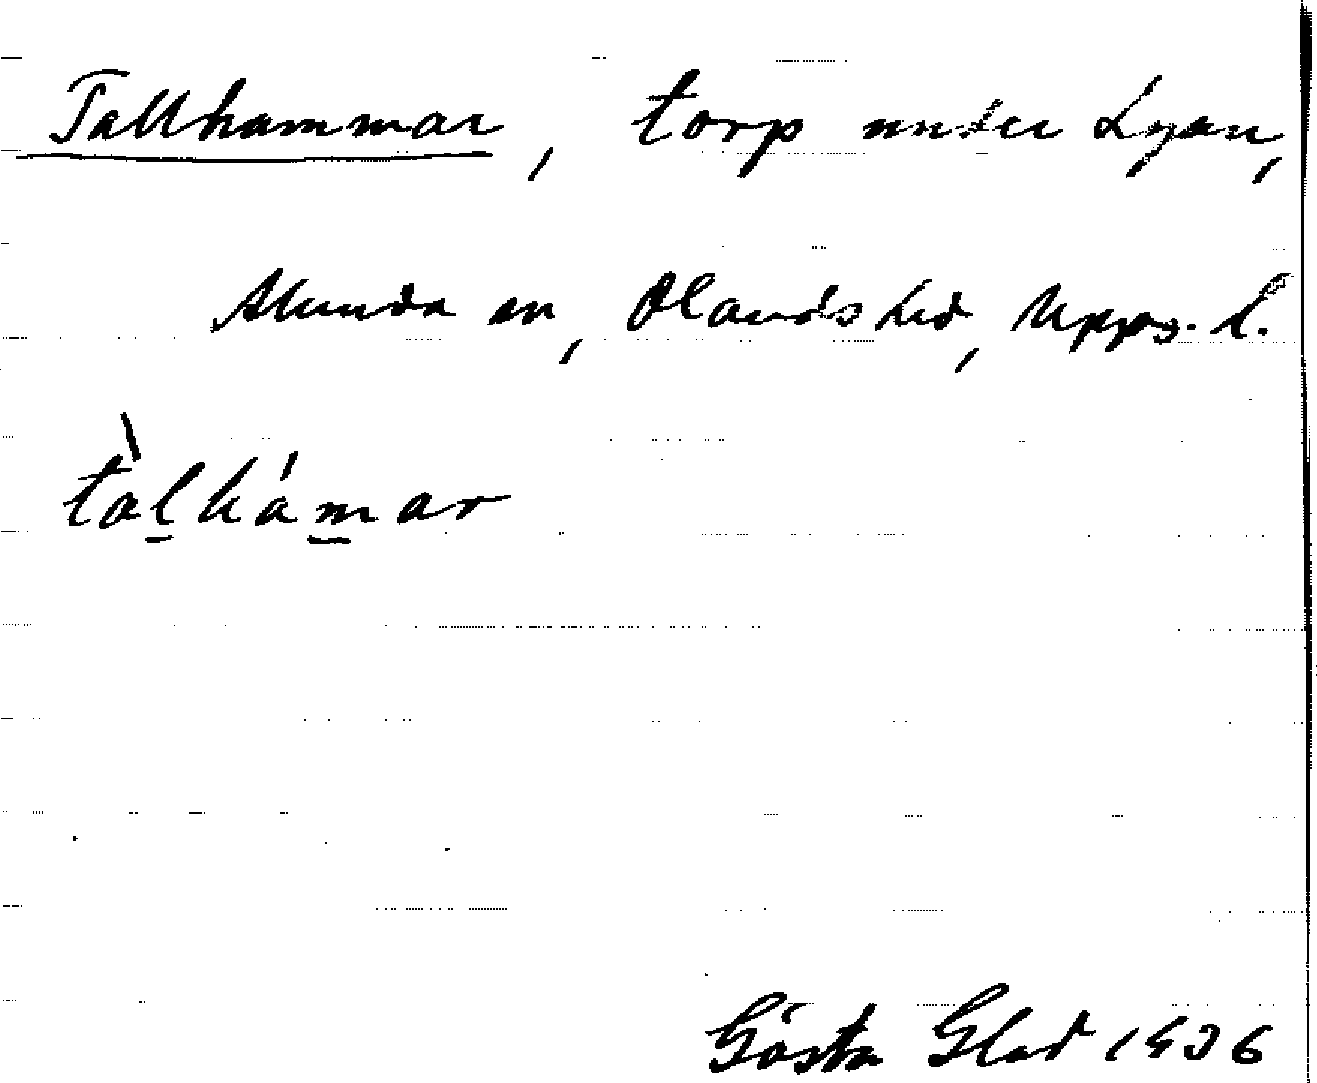 Tallhammar, torp under Lyan,
Alunda sn, Olands hd, Upps. l.
tàl̲hám̲ar
Gösta Glad 1936